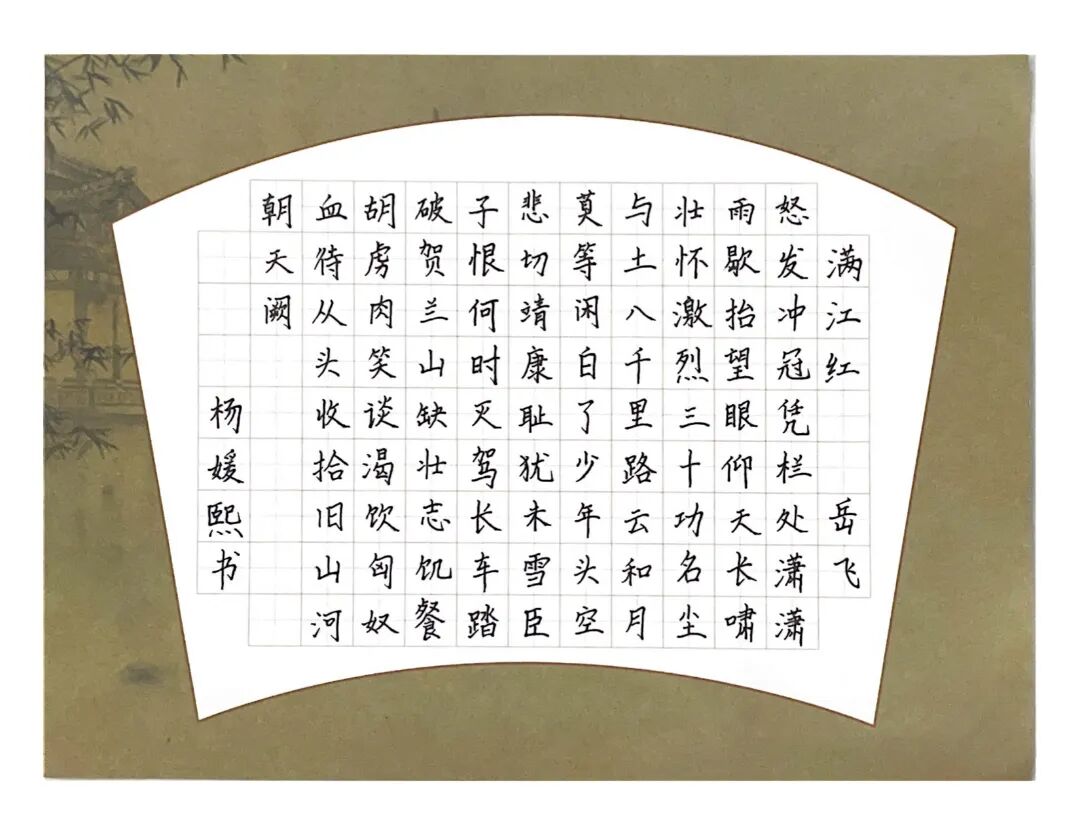 满江红 岳飞
怒发冲冠凭栏处潇潇
雨歇抬望眼仰天长啸
壮怀激烈三十功名尘
与土八千里路云和月
莫等闲白了少年头空
悲切靖康耻犹未雪臣
子恨何时灭驾长车踏
破贺兰山缺壮志饥餐
胡虏肉笑谈渴饮匈奴
血待从头收拾旧山河
朝天阙
杨媛熙书